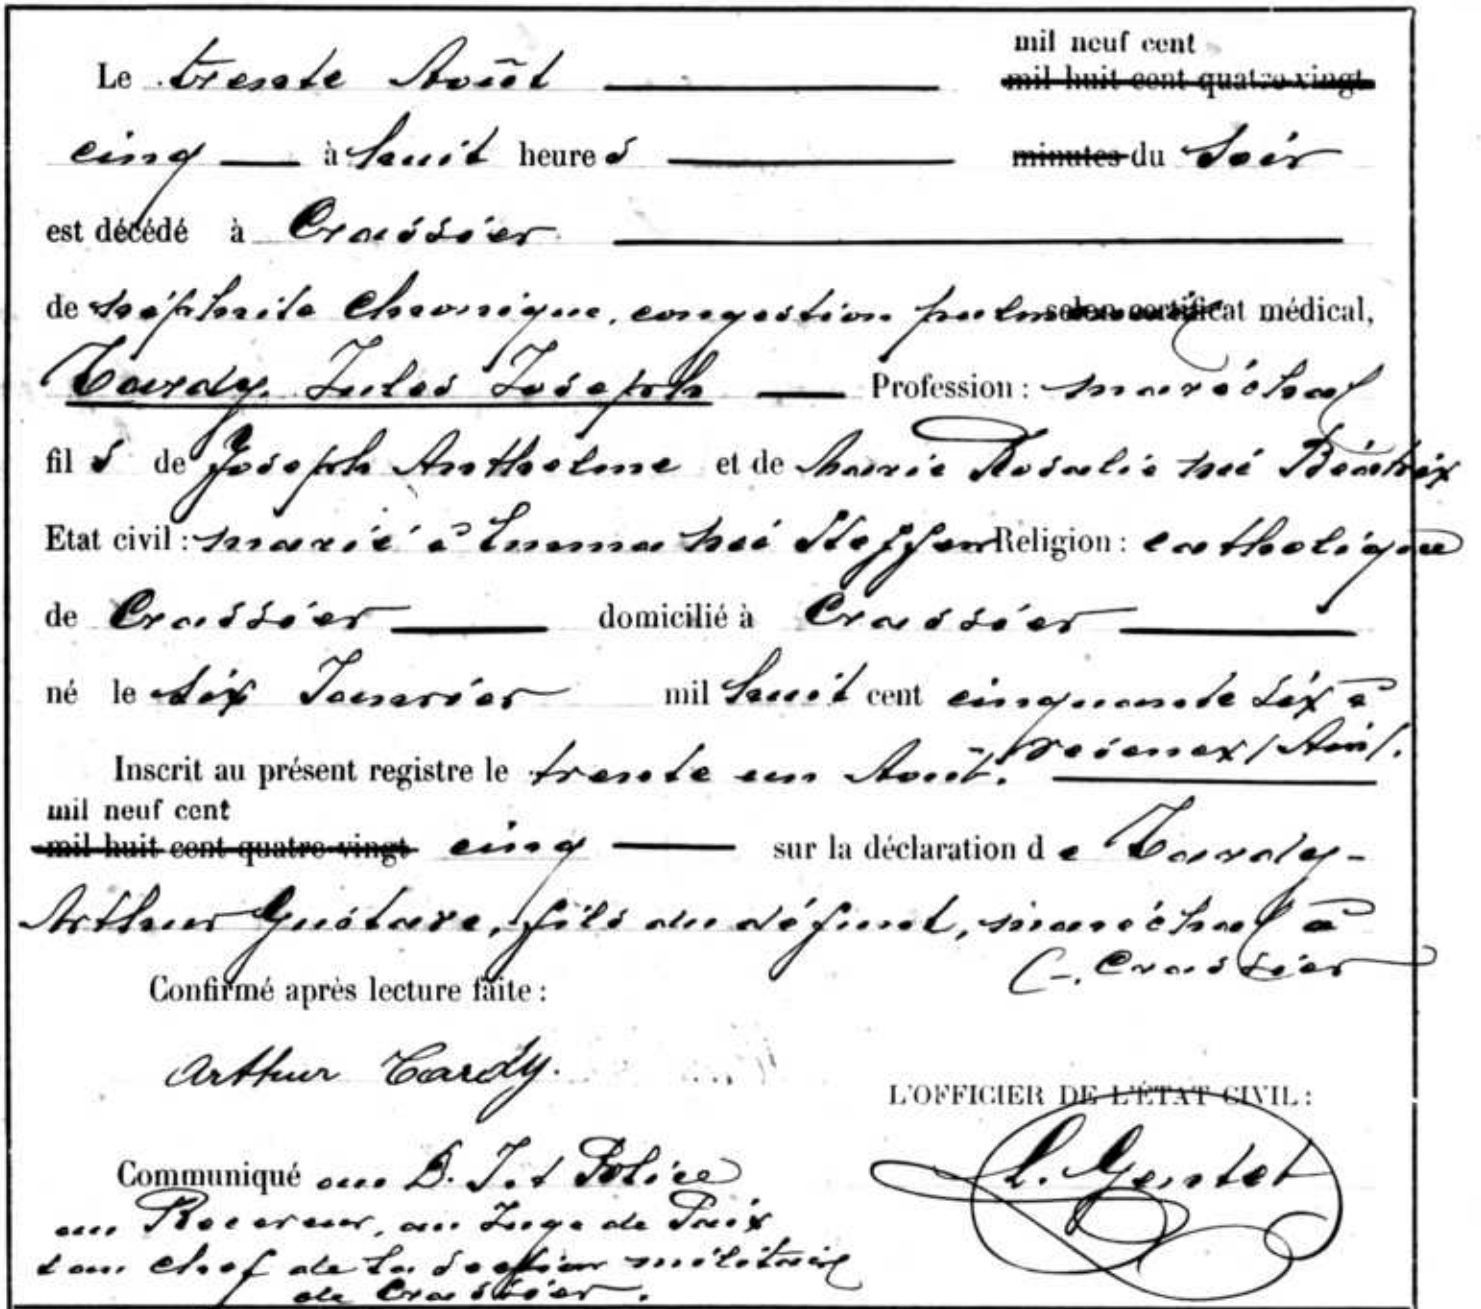 mil neuf cent
Le trente Août mil huit cent quatre-vingt
cinq à huit heures minutes du Soir
est décédé à Crassier
de néphrite chronique, congestion selon certificat médical,
Tardy, Jules Joseph Profession : maréchal
fils de Joseph Anthelme et de Marie Rosalie né Béatrix
Etat civil : marié à Emma né Steffen Religion : catholique
de Crassier domicilié à Crassier
né le six Janvier mil huit cent cinquante six à
/Ain/.
Inscrit au présent registre le trente un Août.
mil neuf cent
mil huit cent quatre-vingt cinq sur la déclaration de Tardy-
Arthur Gustave, fils du défunt, maréchal à
Crassier
Confirmé après lecture faite :
Arthur Tardy.
L'OFFICIER DE L'ÉTAT CIVIL :
Communiqué au D. J. et Police
L. Gentet
au Receveur, au Juge de Paix
et au chef de la section militaire
de Crassier.